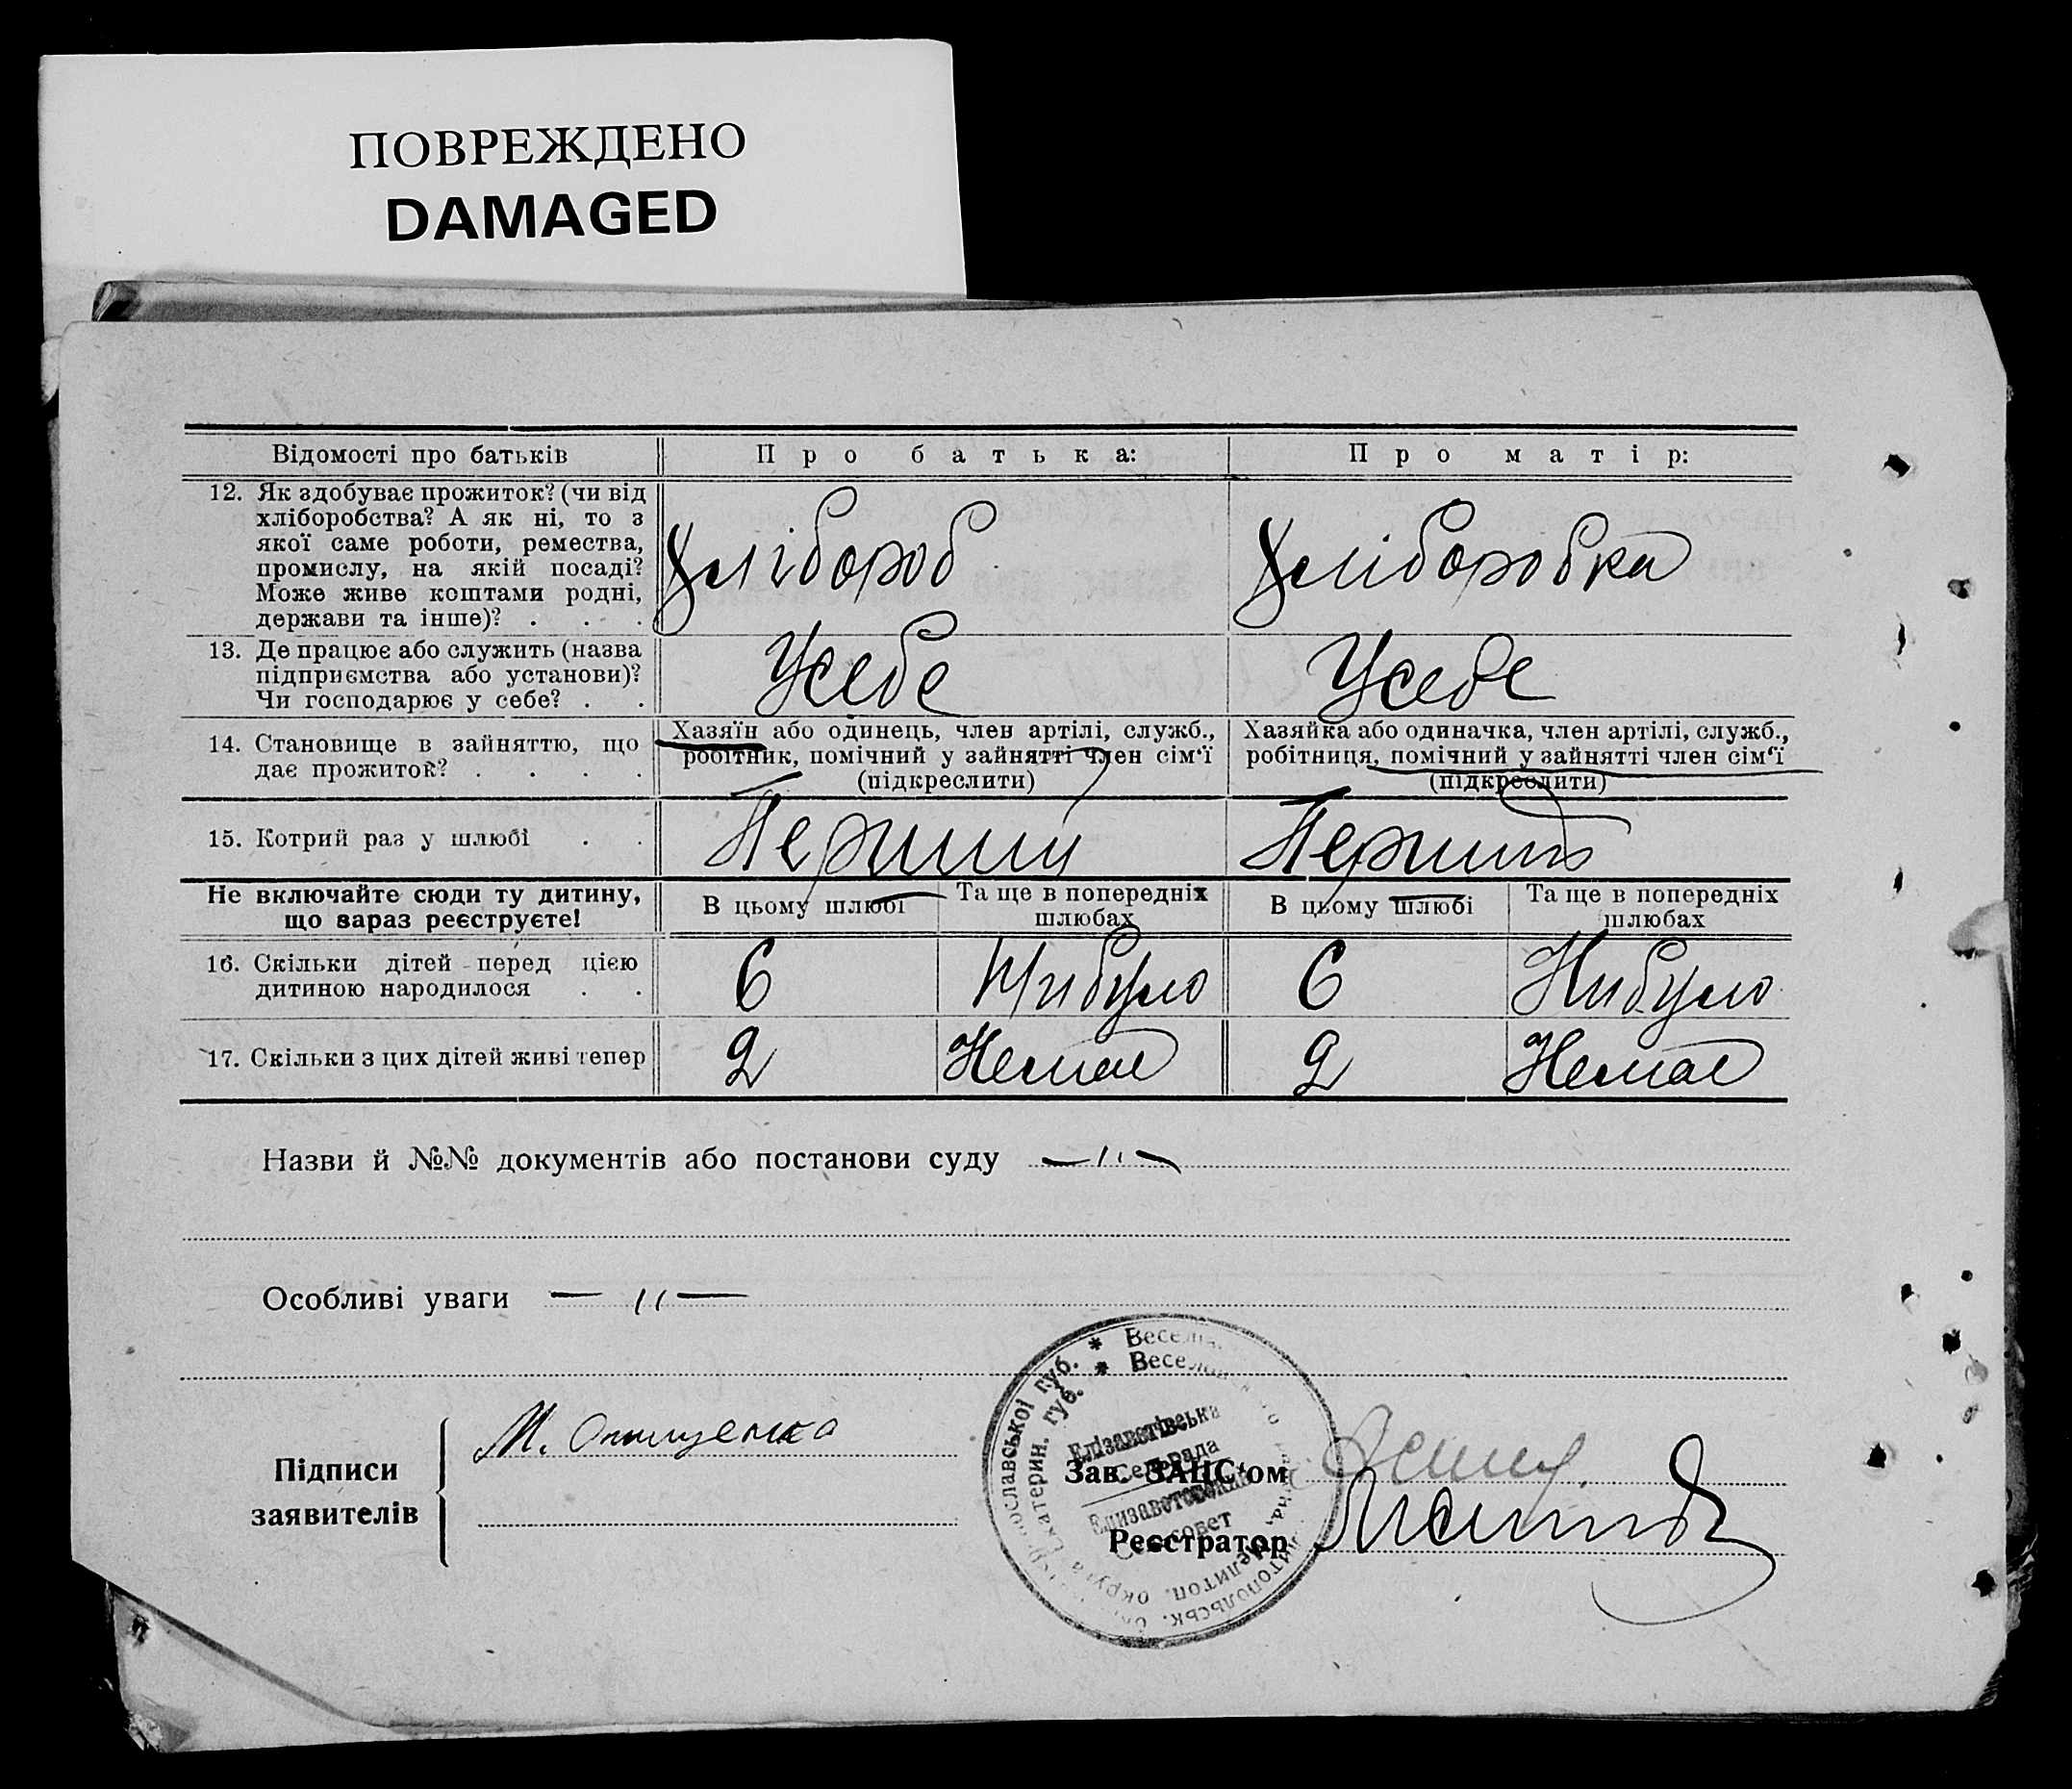 ПОВРЕЖДЕНО
DAMAGED
Відомості про батьків
Про батька:
Про матір:
12. Як здобуває прожиток? (чи від
хліборобства? А як ні, то з
якої саме роботи, ремества,
промислу, на якій посаді?
Може живе коштами родні,
держави та інше)? . . .
Хлібороб
Хліборобка
13. Де працює або служить (назва
підприємства або установи)?
Чи господарює у себе? . .
Усебе
Усебе
14. Становище в зайняттю, що
дає прожиток? . . . .
Хазяїн або одинець, член артілі, служб.,
робітник, помічний у зайнятті член сім‘ї
(підкреслити)
Хазяйка або одиначка, член артілі, служб.,
робітниця, помічний у зайнятті член сім‘ї
(підкреслити)
15. Котрий раз у шлюбі . .
Перший
Перший
Не включайте сюди ту дитину,
що зараз реєструєте!
В цьому шлюбі
Та ще в попередніх
шлюбах
В цьому шлюбі
Та ще в попередніх
шлюбах
16. Скільки дітей перед цією
дитиною народилося . .
6
Нибуло
6
Нибуло
17. Скільки з цих дітей живі тепер
2
Немає
2
Немає
Назви й №№ документів або постанови суду — 〃 —
Особливі уваги — 〃 —
Підписи
заявителів
М. Онищенко
Зав. ЗАГС‘ом
Реєстратор
Єлізаветівська
Сельрада
Елизаветовский
Сельсовет